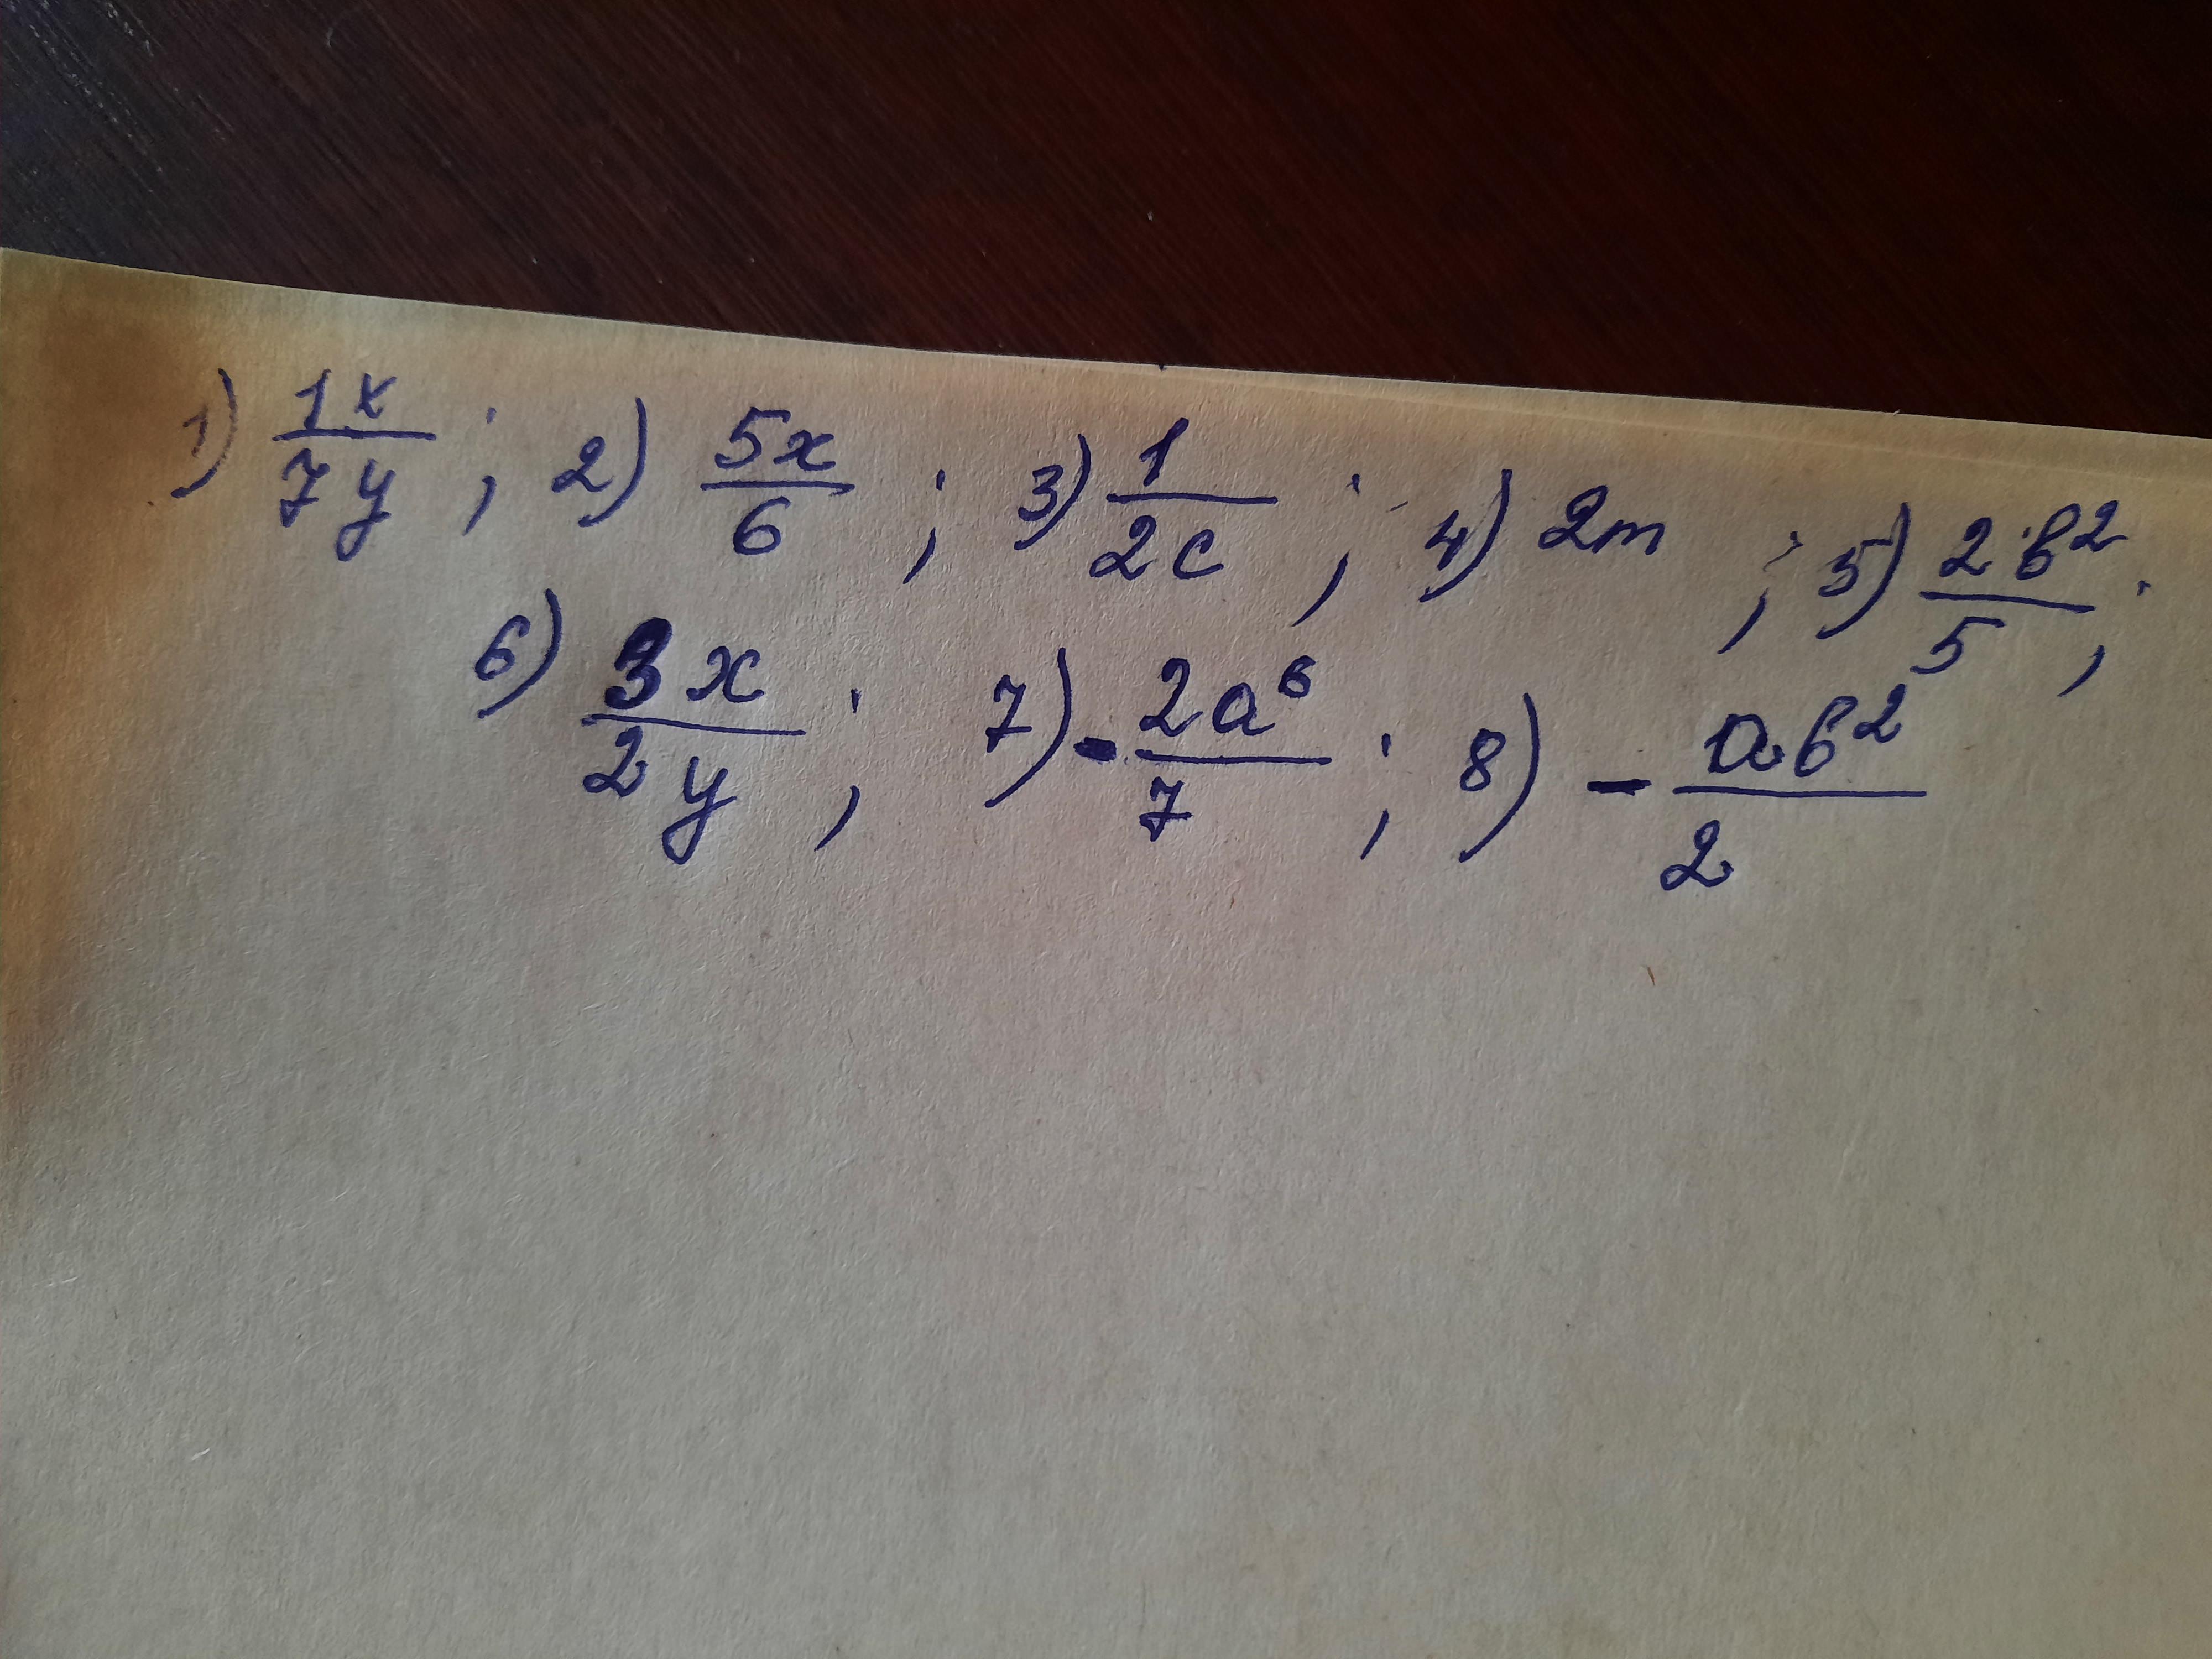 1) 1x/7y ; 2) 5x/6 ; 3) 1/2c ; 4) 2m ; 5) 2b²/5 ;
6) 3x/2y ; 7) - 2a⁶/7 ; 8) - ab²/2